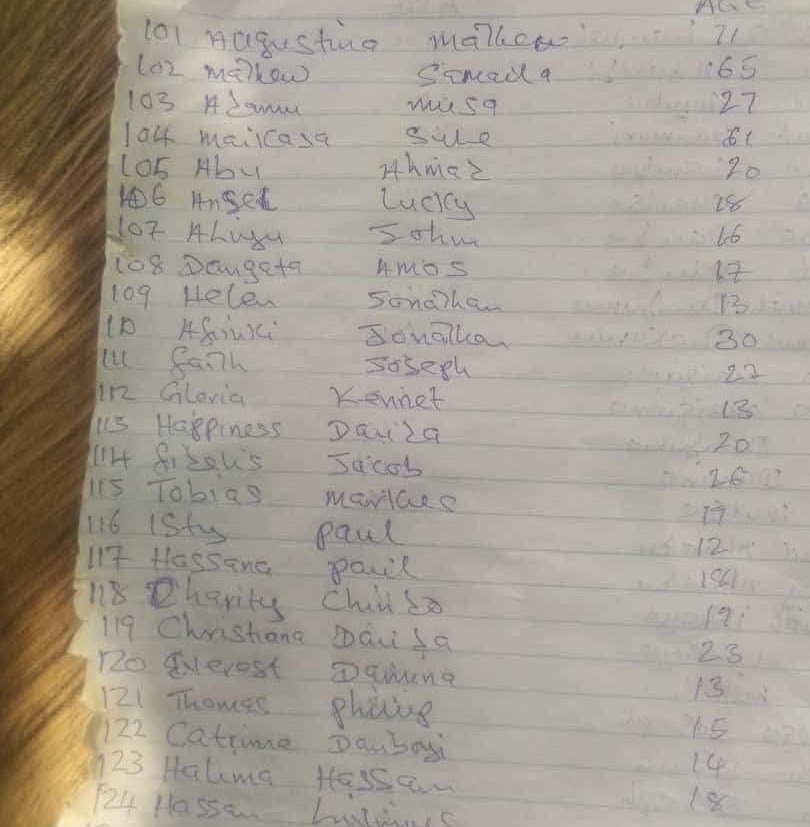 AGE
101 Augustina Mathew 71
102 Mathew Samaila 65
103 Adamu Musa 27
104 Maikasa Sule 61
105 Abu Ahmad 20
106 Angel Lucky 28
107 Aliyu John 16
108 Dangata Amos 17
109 Helen Jonathan 13
110 Jonathan 30
111 Faith Joseph 27
112 Gloria Kennet 13
113 Happiness Dauda 20
114 Fidelis Jacob 26
115 Tobias 19
116 Isty Paul 12
117 Hassana Paul
118 Charity 19
119 Christiana Dauda 23
120 Everest Damina 13
121 Thomas Philip 15
122 Catrine Danboyi 14
123 Halima Hassan 18
124 Hassan